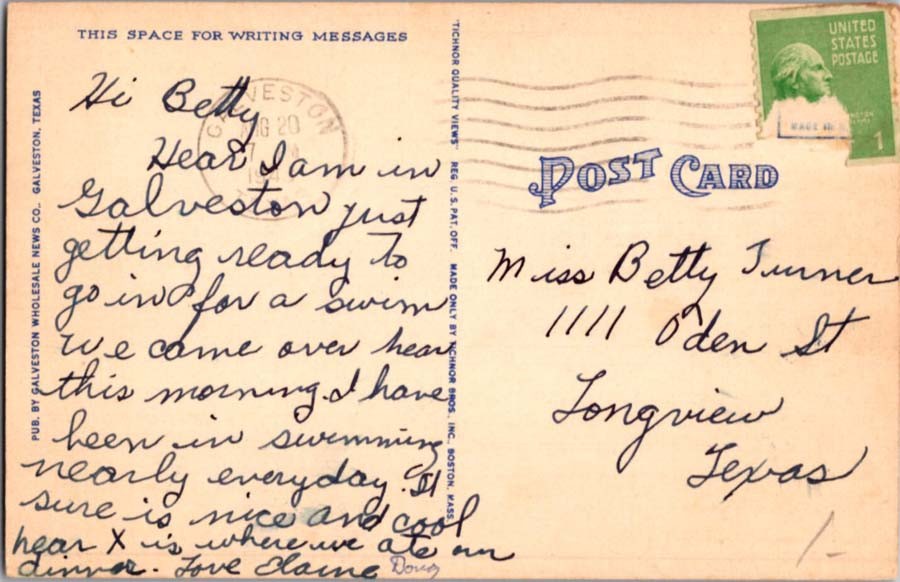 THIS SPACE FOR WRITING MESSAGES
Hi Betty
Hear I am in
Galveston just
getting ready to
go in for a swim
We came over hear
this morning. I have
been in swimming
nearly everyday. It
sure is nice and cool
hear X is where we ate our
dinner. Love Elaine
Doug
PUB. BY GALVESTON WHOLESALE NEWS CO., GALVESTON, TEXAS
"TICHNOR QUALITY VIEWS" REG. U. S. PAT. OFF. MADE ONLY BY TICHNOR BROS., INC., BOSTON, MASS.
GALVESTON
AUG 20
UNITED
STATES
POSTAGE
1
MADE IN
POST CARD
Miss Betty Turner
1111 Oden St
Longview
Texas
1-